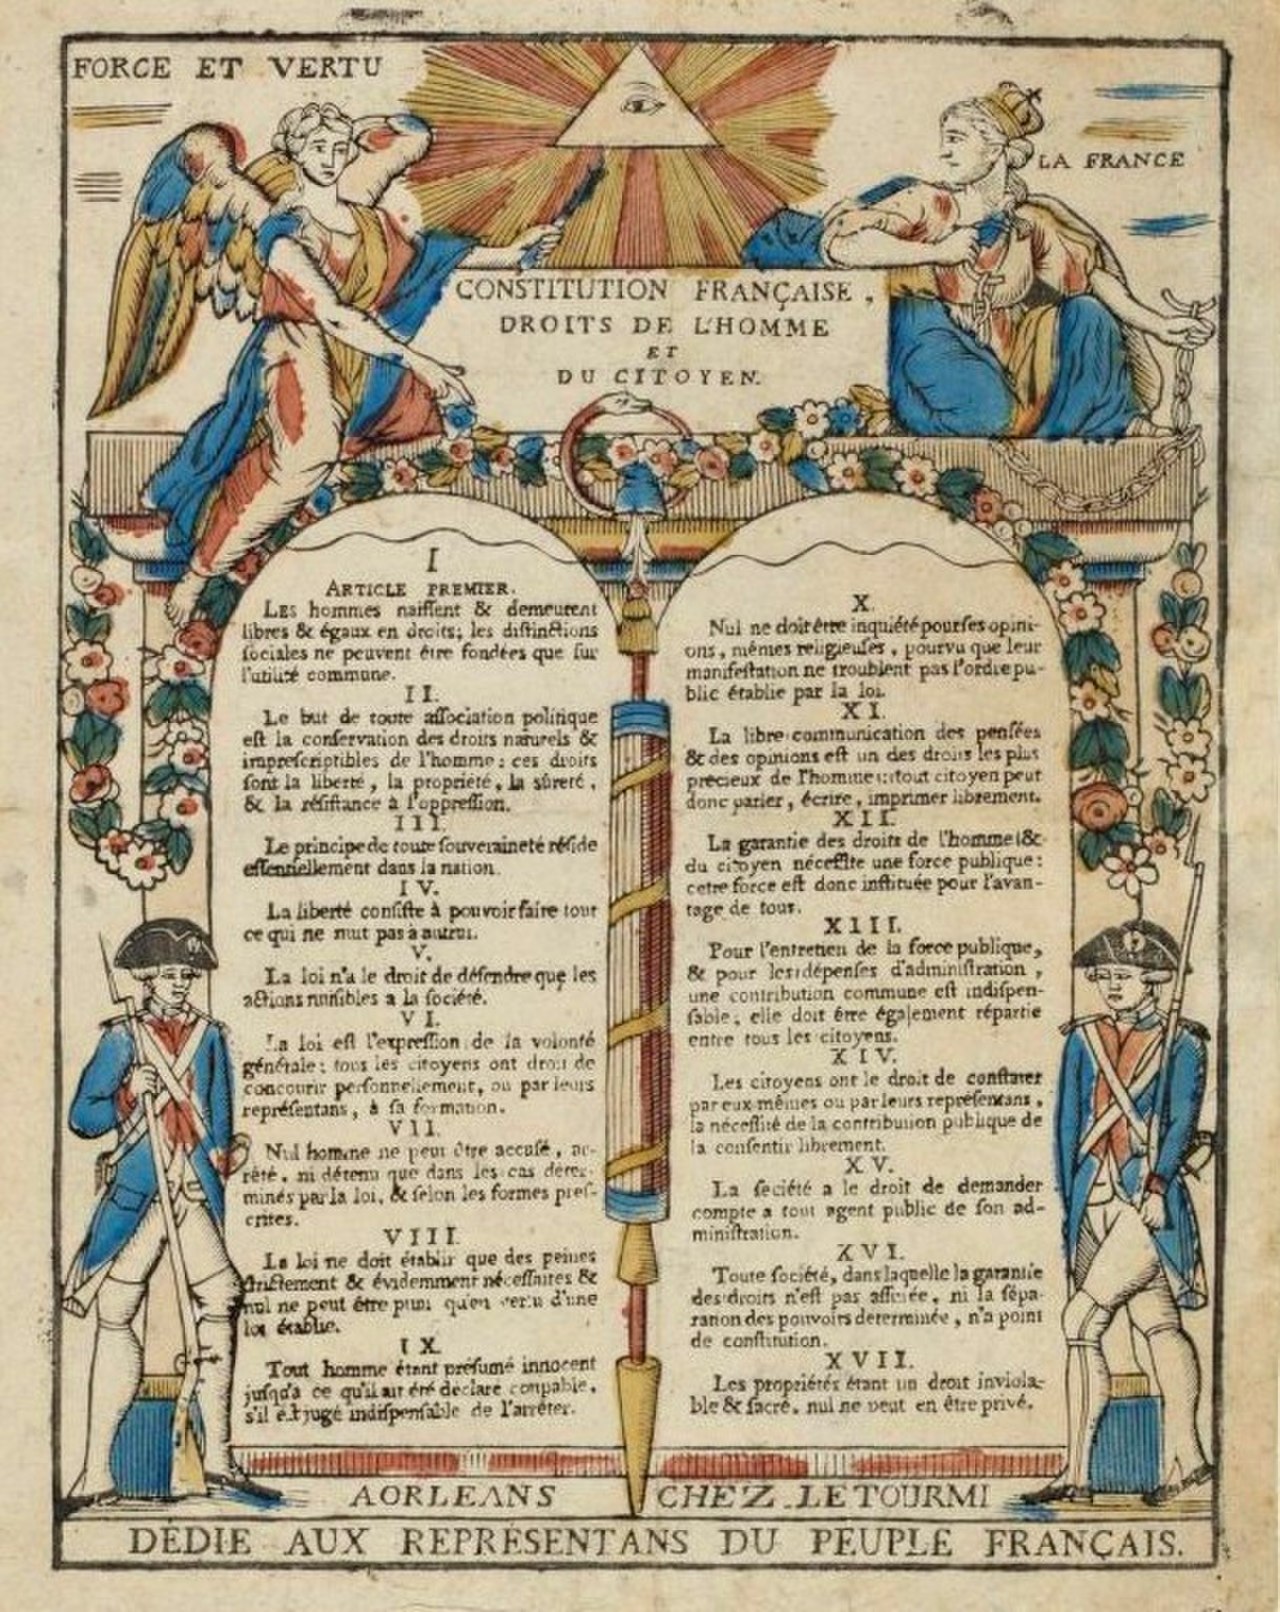 FORCE ET VERTU
LA FRANCE
CONSTITUTION FRANÇAISE,
DROITS DE L'HOMME
ET
DU CITOYEN.
I
ARTICLE PREMIER.
LES hommes naissent & demeurent
libres & égaux en droits; les distinctions
sociales ne peuvent être fondées que sur
l'utilité commune.
II.
Le but de toute association politique
est la conservation des droits naturels &
imprescriptibles de l'homme: ces droits
sont la liberté, la propriété, la sûreté,
& la résistance à l'oppression.
III.
Le principe de toute souveraineté réside
essentiellement dans la nation.
IV.
La liberté consiste à pouvoir faire tout
ce qui ne nuit pas à autrui.
V.
La loi n'a le droit de défendre que les
actions nuisibles a la société.
VI.
La loi est l'expression de la volonté
générale; tous les citoyens ont droit de
concourir personnellement, ou par leurs
représentans, à sa formation.
VII.
Nul homme ne peut être accusé, ar-
rêté, ni détenu que dans les cas déter-
minés par la loi, & selon les formes pres-
crites.
VIII.
La loi ne doit établir que des peines
strictement & évidemment nécessaires &
nul ne peut être puni qu'en vertu d'une
loi établie.
IX.
Tout homme étant présumé innocent
jusqu'a ce qu'il ait été declare coupable,
s'il est jugé indispensable de l'arrêter.
X.
Nul ne doit être inquiété pour ses opini-
ons, mêmes religieuses, pourvu que leur
manifestation ne troublent pas l'ordre pu-
blic établie par la loi.
XI.
La libre communication des pensées
& des opinions est un des droits les plus
précieux de l'homme: tout citoyen peut
donc parler, écrire, imprimer librement.
XII.
La garantie des droits de l'homme &
du citoyen nécessite une force publique:
cette force est donc instituée pour l'avan-
tage de tous.
XIII.
Pour l'entretien de la force publique,
& pour les dépenses d'administration,
une contribution commune est indispen-
sable; elle doit être également répartie
entre tous les citoyens.
XIV.
Les citoyens ont le droit de constater
par eux-mêmes ou par leurs représentans,
la nécessité de la contribution publique de
la consentir librement.
XV.
La société a le droit de demander
compte a tout agent public de son ad-
ministration.
XVI.
Toute société, dans laquelle la garantie
des droits n'est pas assurée, ni la sépa-
ration des pouvoirs determinée, n'a point
de constitution.
XVII.
Les propriétés étant un droit inviola-
ble & sacré, nul ne peut en être privé.
AORLEANS CHEZ LETOURMI
DÉDIE AUX REPRÉSENTANS DU PEUPLE FRANÇAIS.